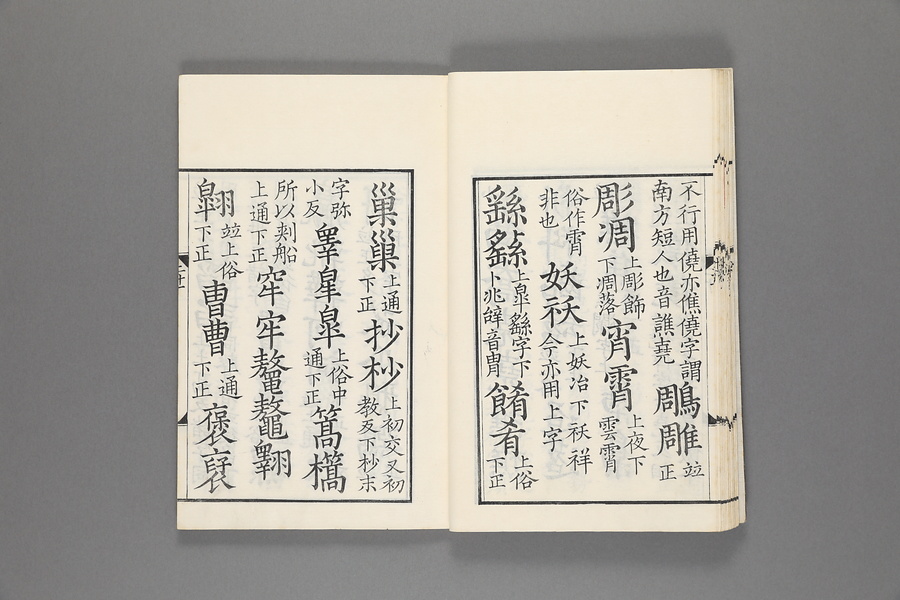 不行用僥亦僬僥字謂
南方短人也音譙堯鵰雕並
正
彫凋上彫飾
下凋落宵霄上夜下
雲霄
俗作霄
非也妖祅上妖冶下祅祥
今亦用上字
繇繇上臯繇字下
卜兆辭音胄餚肴上俗
下正
巢巢上通
下正抄杪上初交又初
教反下杪末
字弥
小反睾皋臯上俗中
通下正篙樆
所以刾船
上通下正窂牢鼇鼈翶
翱並上俗
下正曺曹上通
下正褒